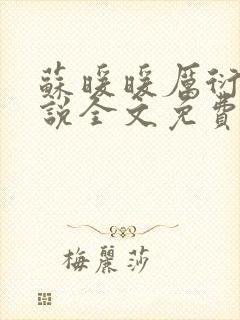 蘇暖暖厲衍
說全文免費
梅麗莎